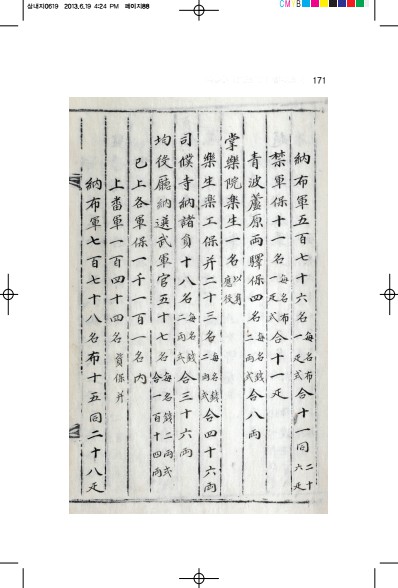 삼내지0619 2013.6.19 4:24 PM 페이지88
CMYB
171
納布軍五百七十六名每名布一疋式合十一同二十六疋
禁軍保十一名每名布一疋式合十一疋
青波蘆原兩驛保四名每名錢二兩式合八兩
掌樂院樂生一名以身應役
樂生樂工保并二十三名每名錢二兩式合四十六兩
司僕寺納諸員十八名每名錢二兩式合三十六兩
均役廳納選武軍官五十七名每名錢二兩式合一百十四兩
已上各軍保一千一百一名內
上番軍一百四十四名資保并
納布軍七百七十八名布十五同二十八疋